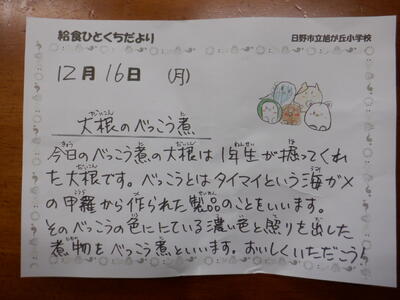 給食ひとくちだより
日野市立旭が丘小学校
12月16日 (月)
大根のべっこう煮
今日のべっこう煮の大根は1年生が掘ってくれ
た大根です。べっこうとはタイマイという海ガメ
の甲羅から作られた製品のことをいいます。
そのべっこうの色ににている濃い色と照りを出した
煮物をべっこう煮といいます。おいしくいただこう!